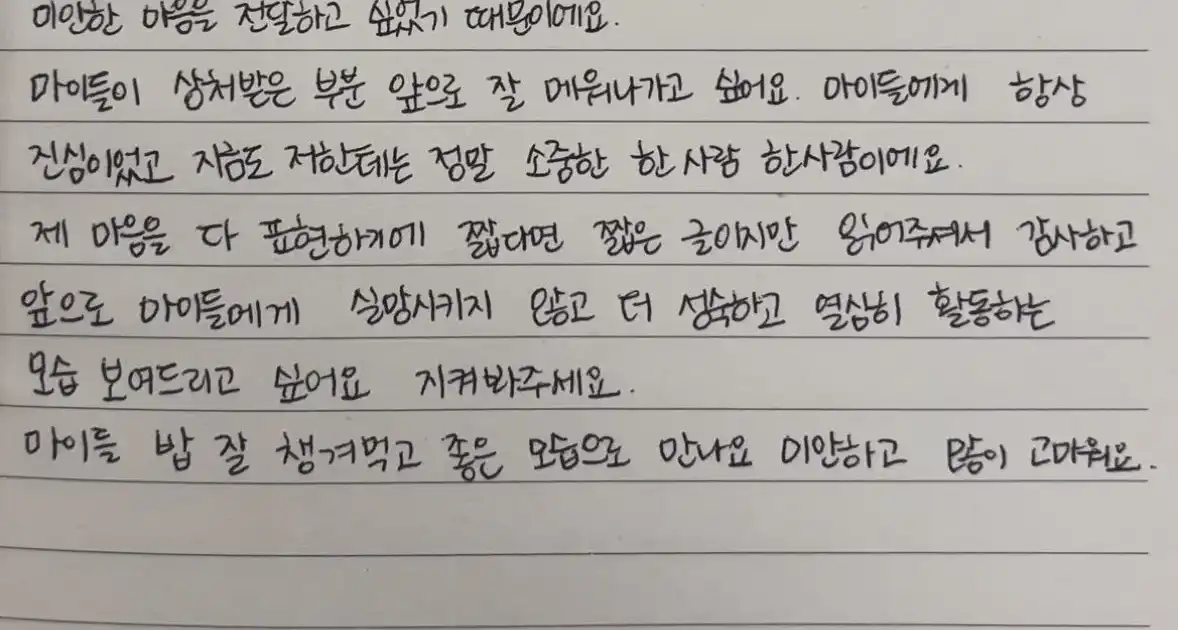 미안한 마음을 전달하고 싶었기 때문이에요.
마이들이 상처받은 부분 앞으로 잘 메워나가고 싶어요. 마이들에게 항상
진심이었고 지금도 저한테는 정말 소중한 한 사람 한사람이에요.
제 마음을 다 표현하기에 짧다면 짧은 글이지만 읽어주셔서 감사하고
앞으로 마이들에게 실망시키지 않고 더 성숙하고 열심히 활동하는
모습 보여드리고 싶어요 지켜봐주세요.
마이들 밥 잘 챙겨먹고 좋은 모습으로 만나요 미안하고 많이 고마워요.